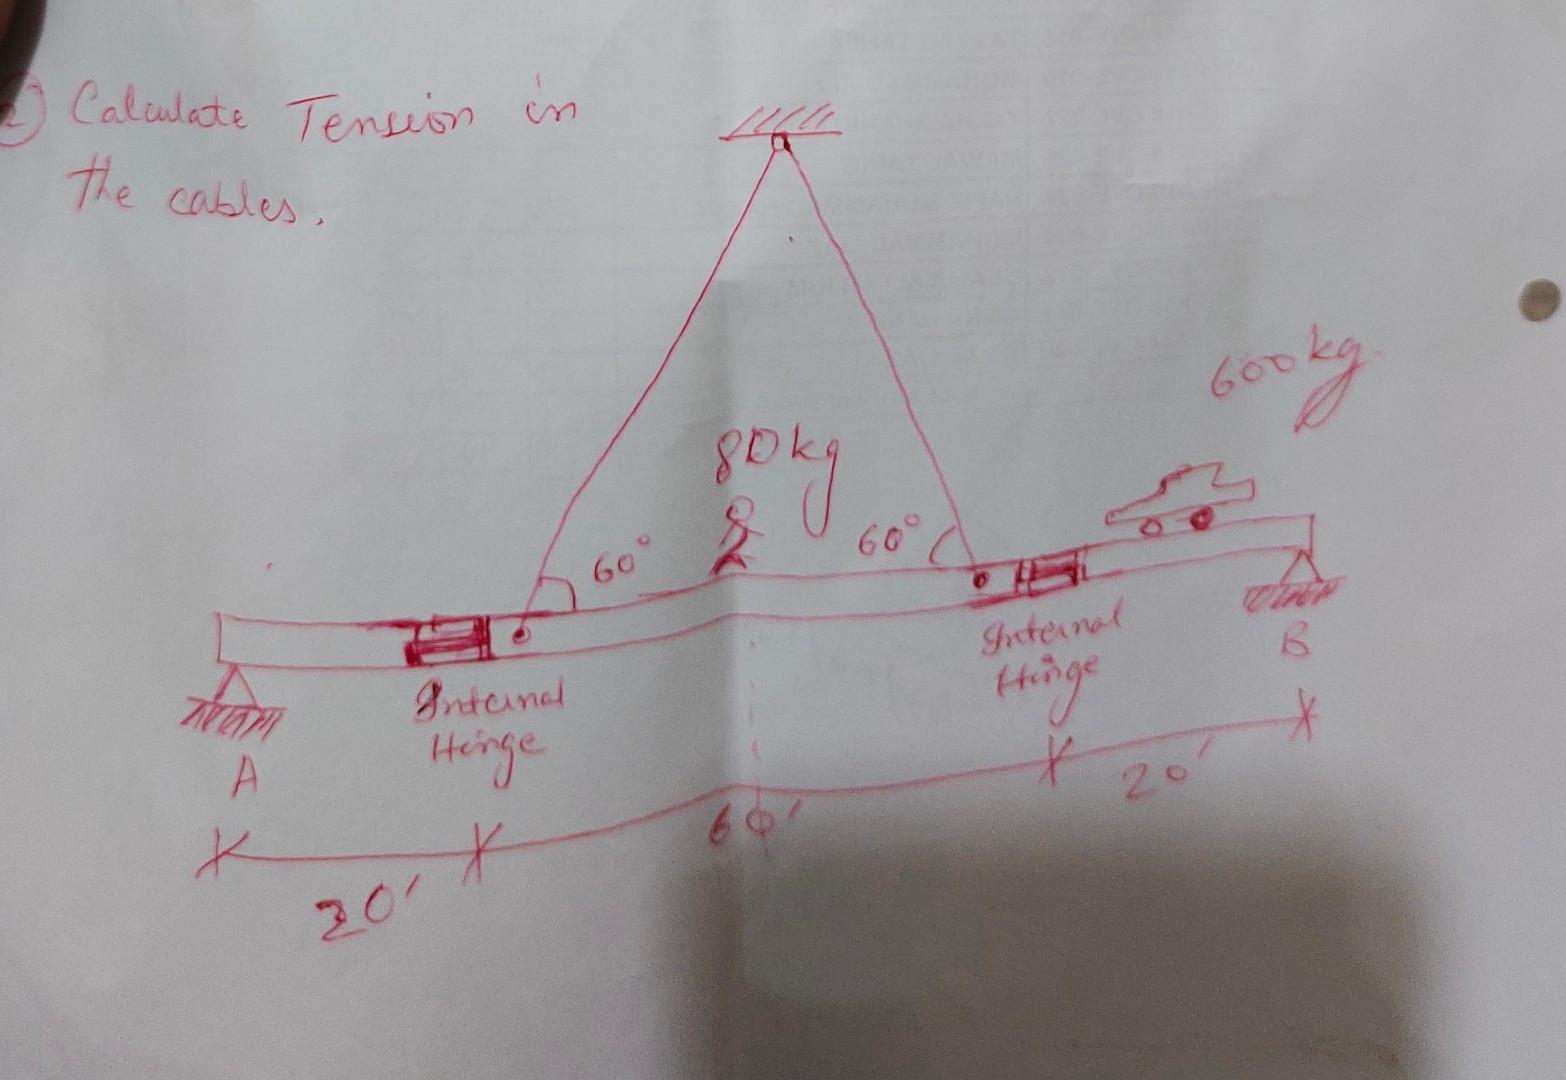 2) Calculate Tension in
the cables.
600 kg.
80 kg
60°
60°
Internal
Hinge
Internal
Hinge
A
B
20'
60'
20'